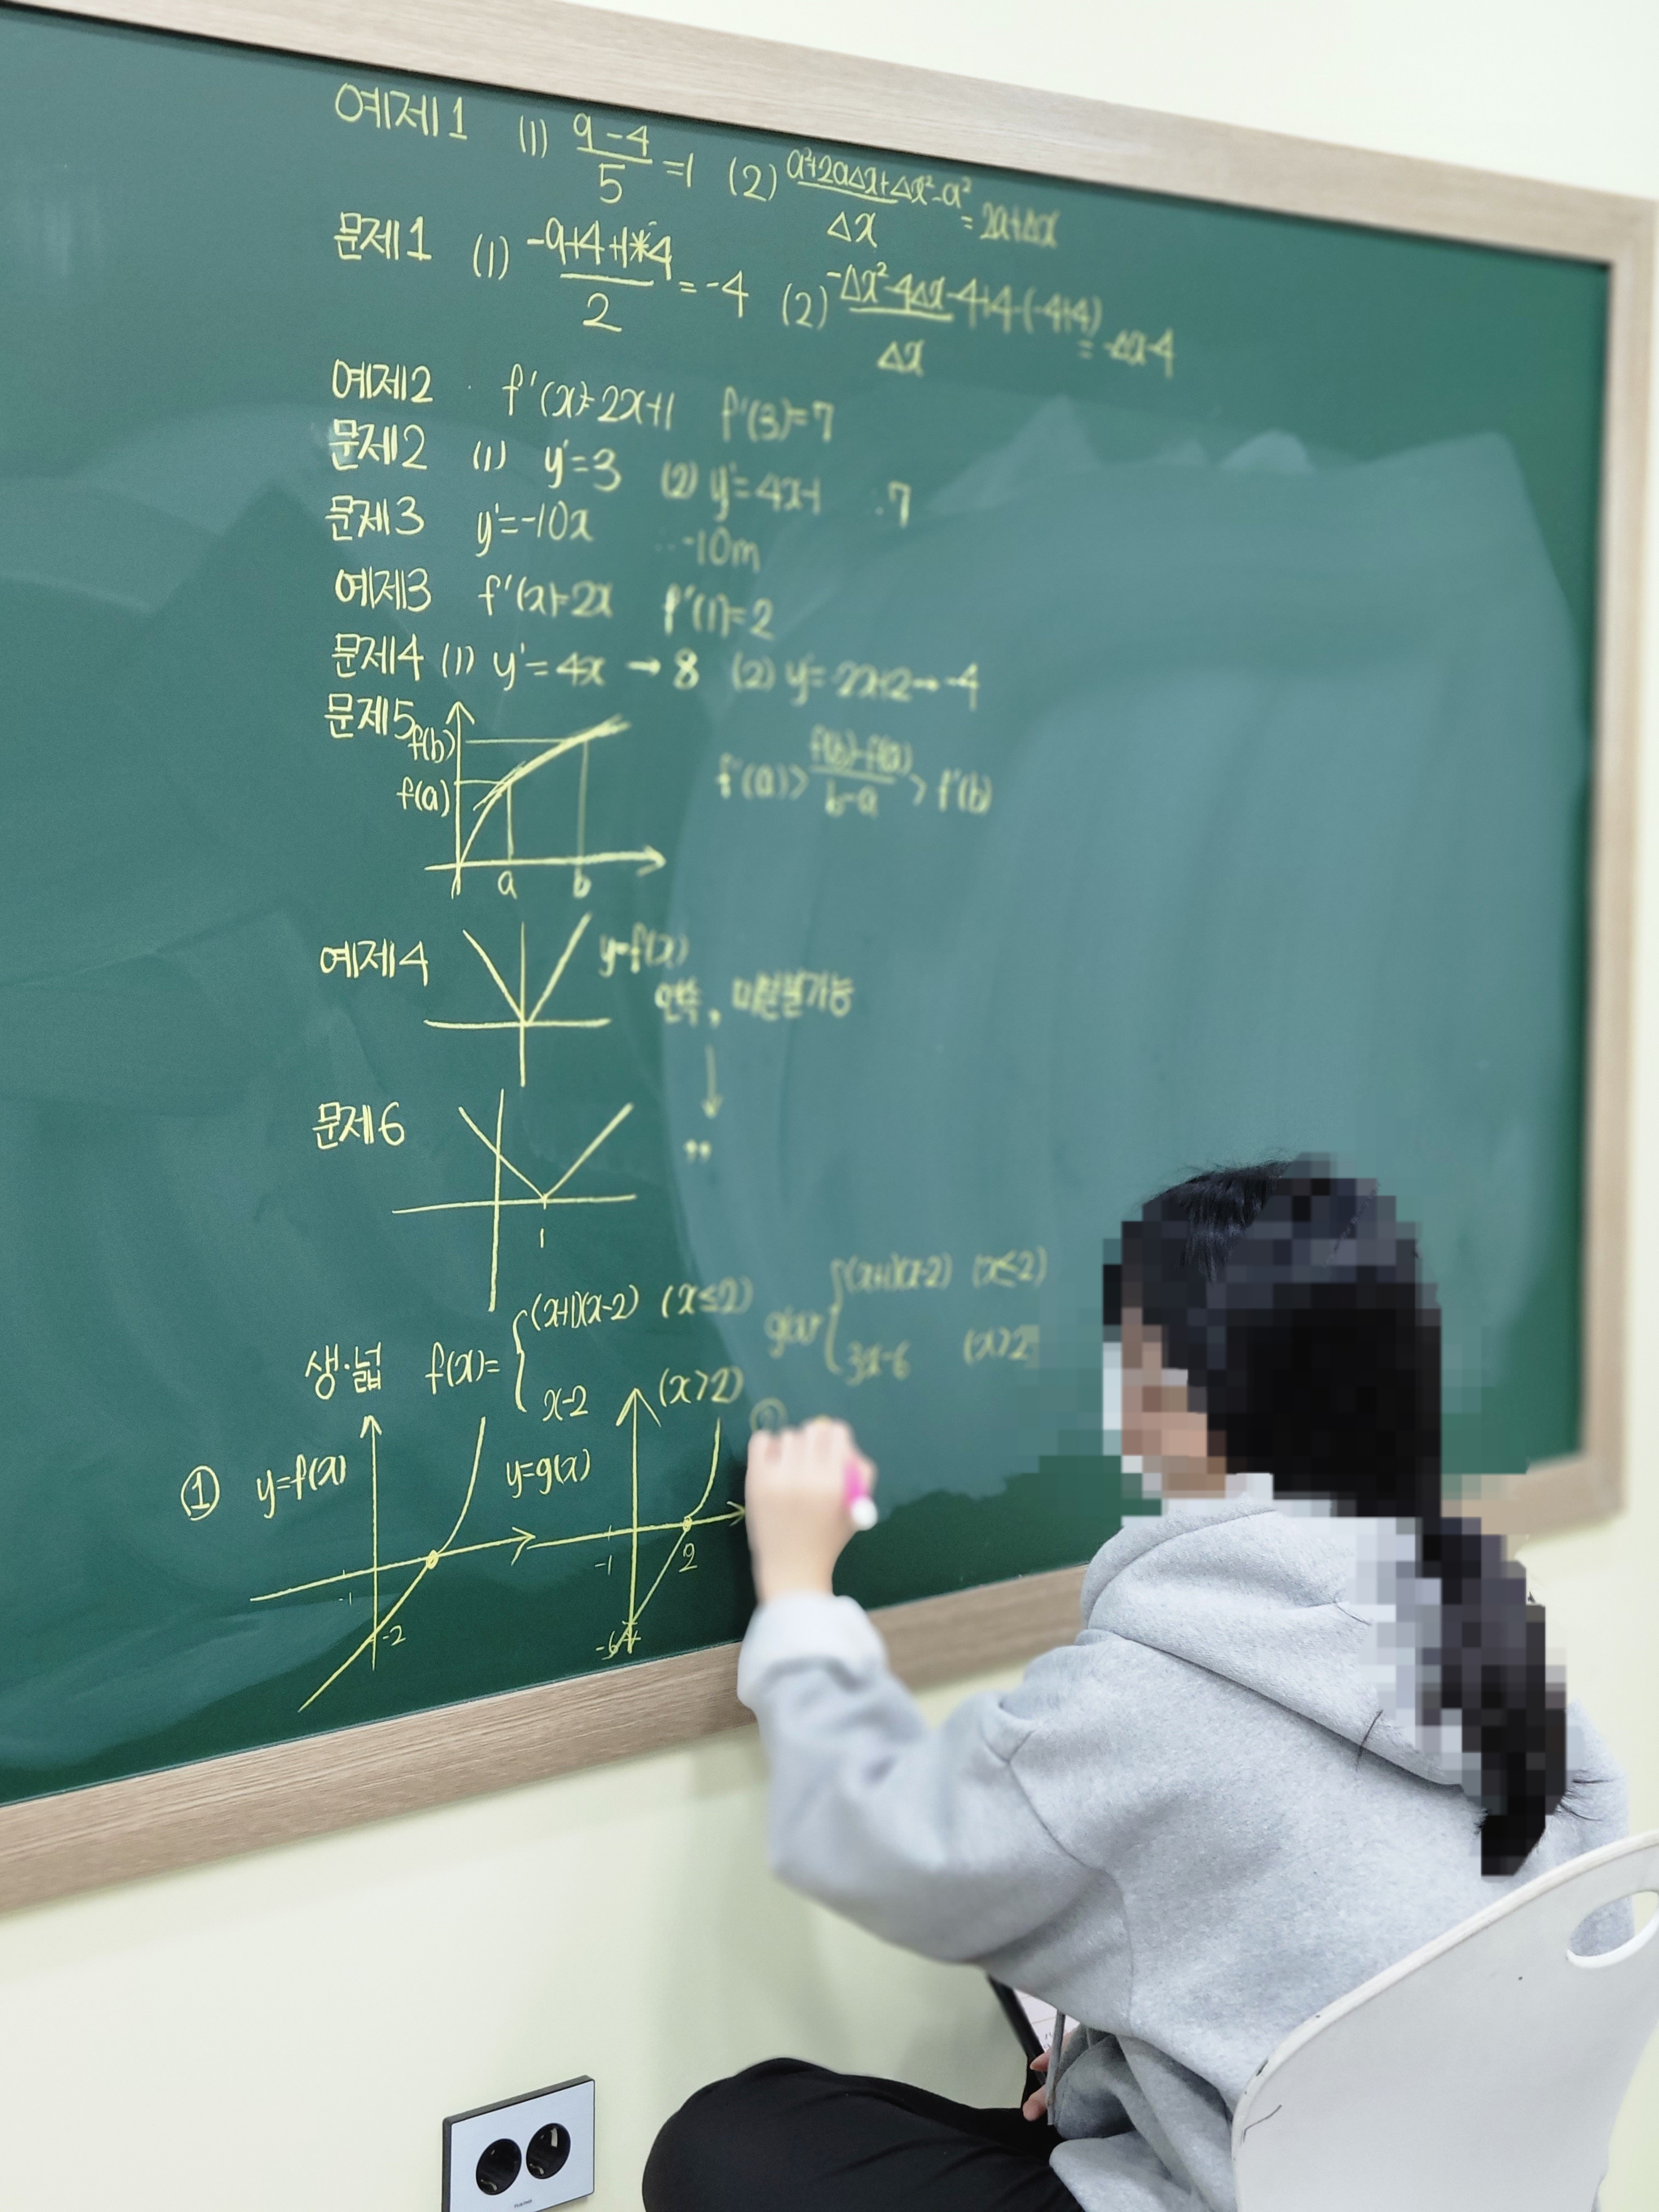 예제1 (1) 9-4/5 =1 (2) a²+2aΔx+Δx²-a²/Δx = 2a+Δx
문제1 (1) -9+4+1*4/2 = -4 (2) -Δx²-4Δx-4+4-(-4+4)/Δx = -Δx-4
예제2 f'(x)=2x+1 f'(3)=7
문제2 (1) y'=3 (2) y'=4x-1 ∴7
문제3 y'=-10x ∴-10m
예제3 f'(x)=2x f'(1)=2
문제4 (1) y'=4x → 8 (2) y'=2x+2→-4
문제5 f(b)
f(a) f'(a)> f(b)-f(a)/b-a > f'(b)
a b
예제4 y=f(x)
연속, 미분불가능
↓
문제6 ,,
1
생·넓 f(x)={(x+1)(x-2) (x≤2) g(x)={(x+1)(x-2) (x≤2)
x-2 (x>2) 3x-6 (x>2)
① y=f(x) y=g(x) ②
-1 -1 2
-2 -6